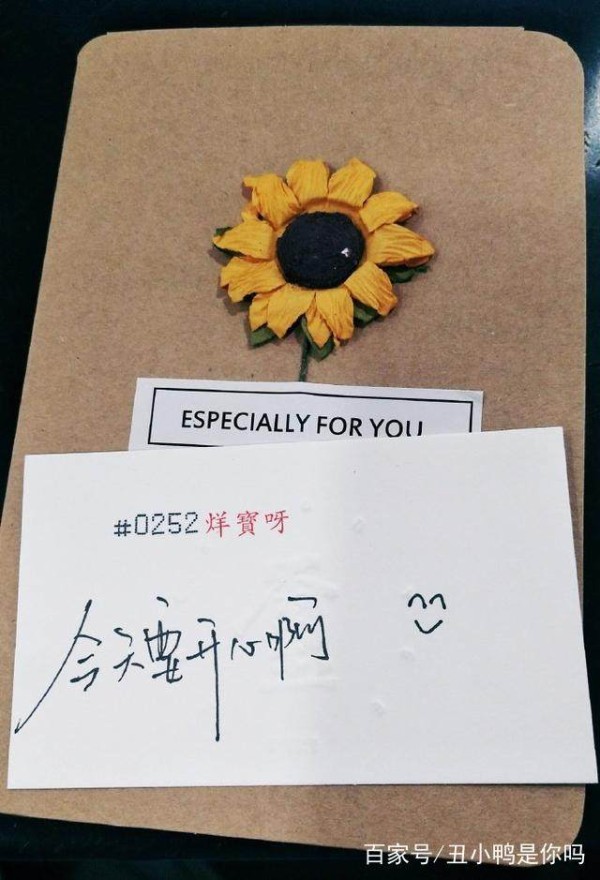 ESPECIALLY FOR YOU
#0252烊寶呀
今天要开心啊
百家号/丑小鸭是你吗